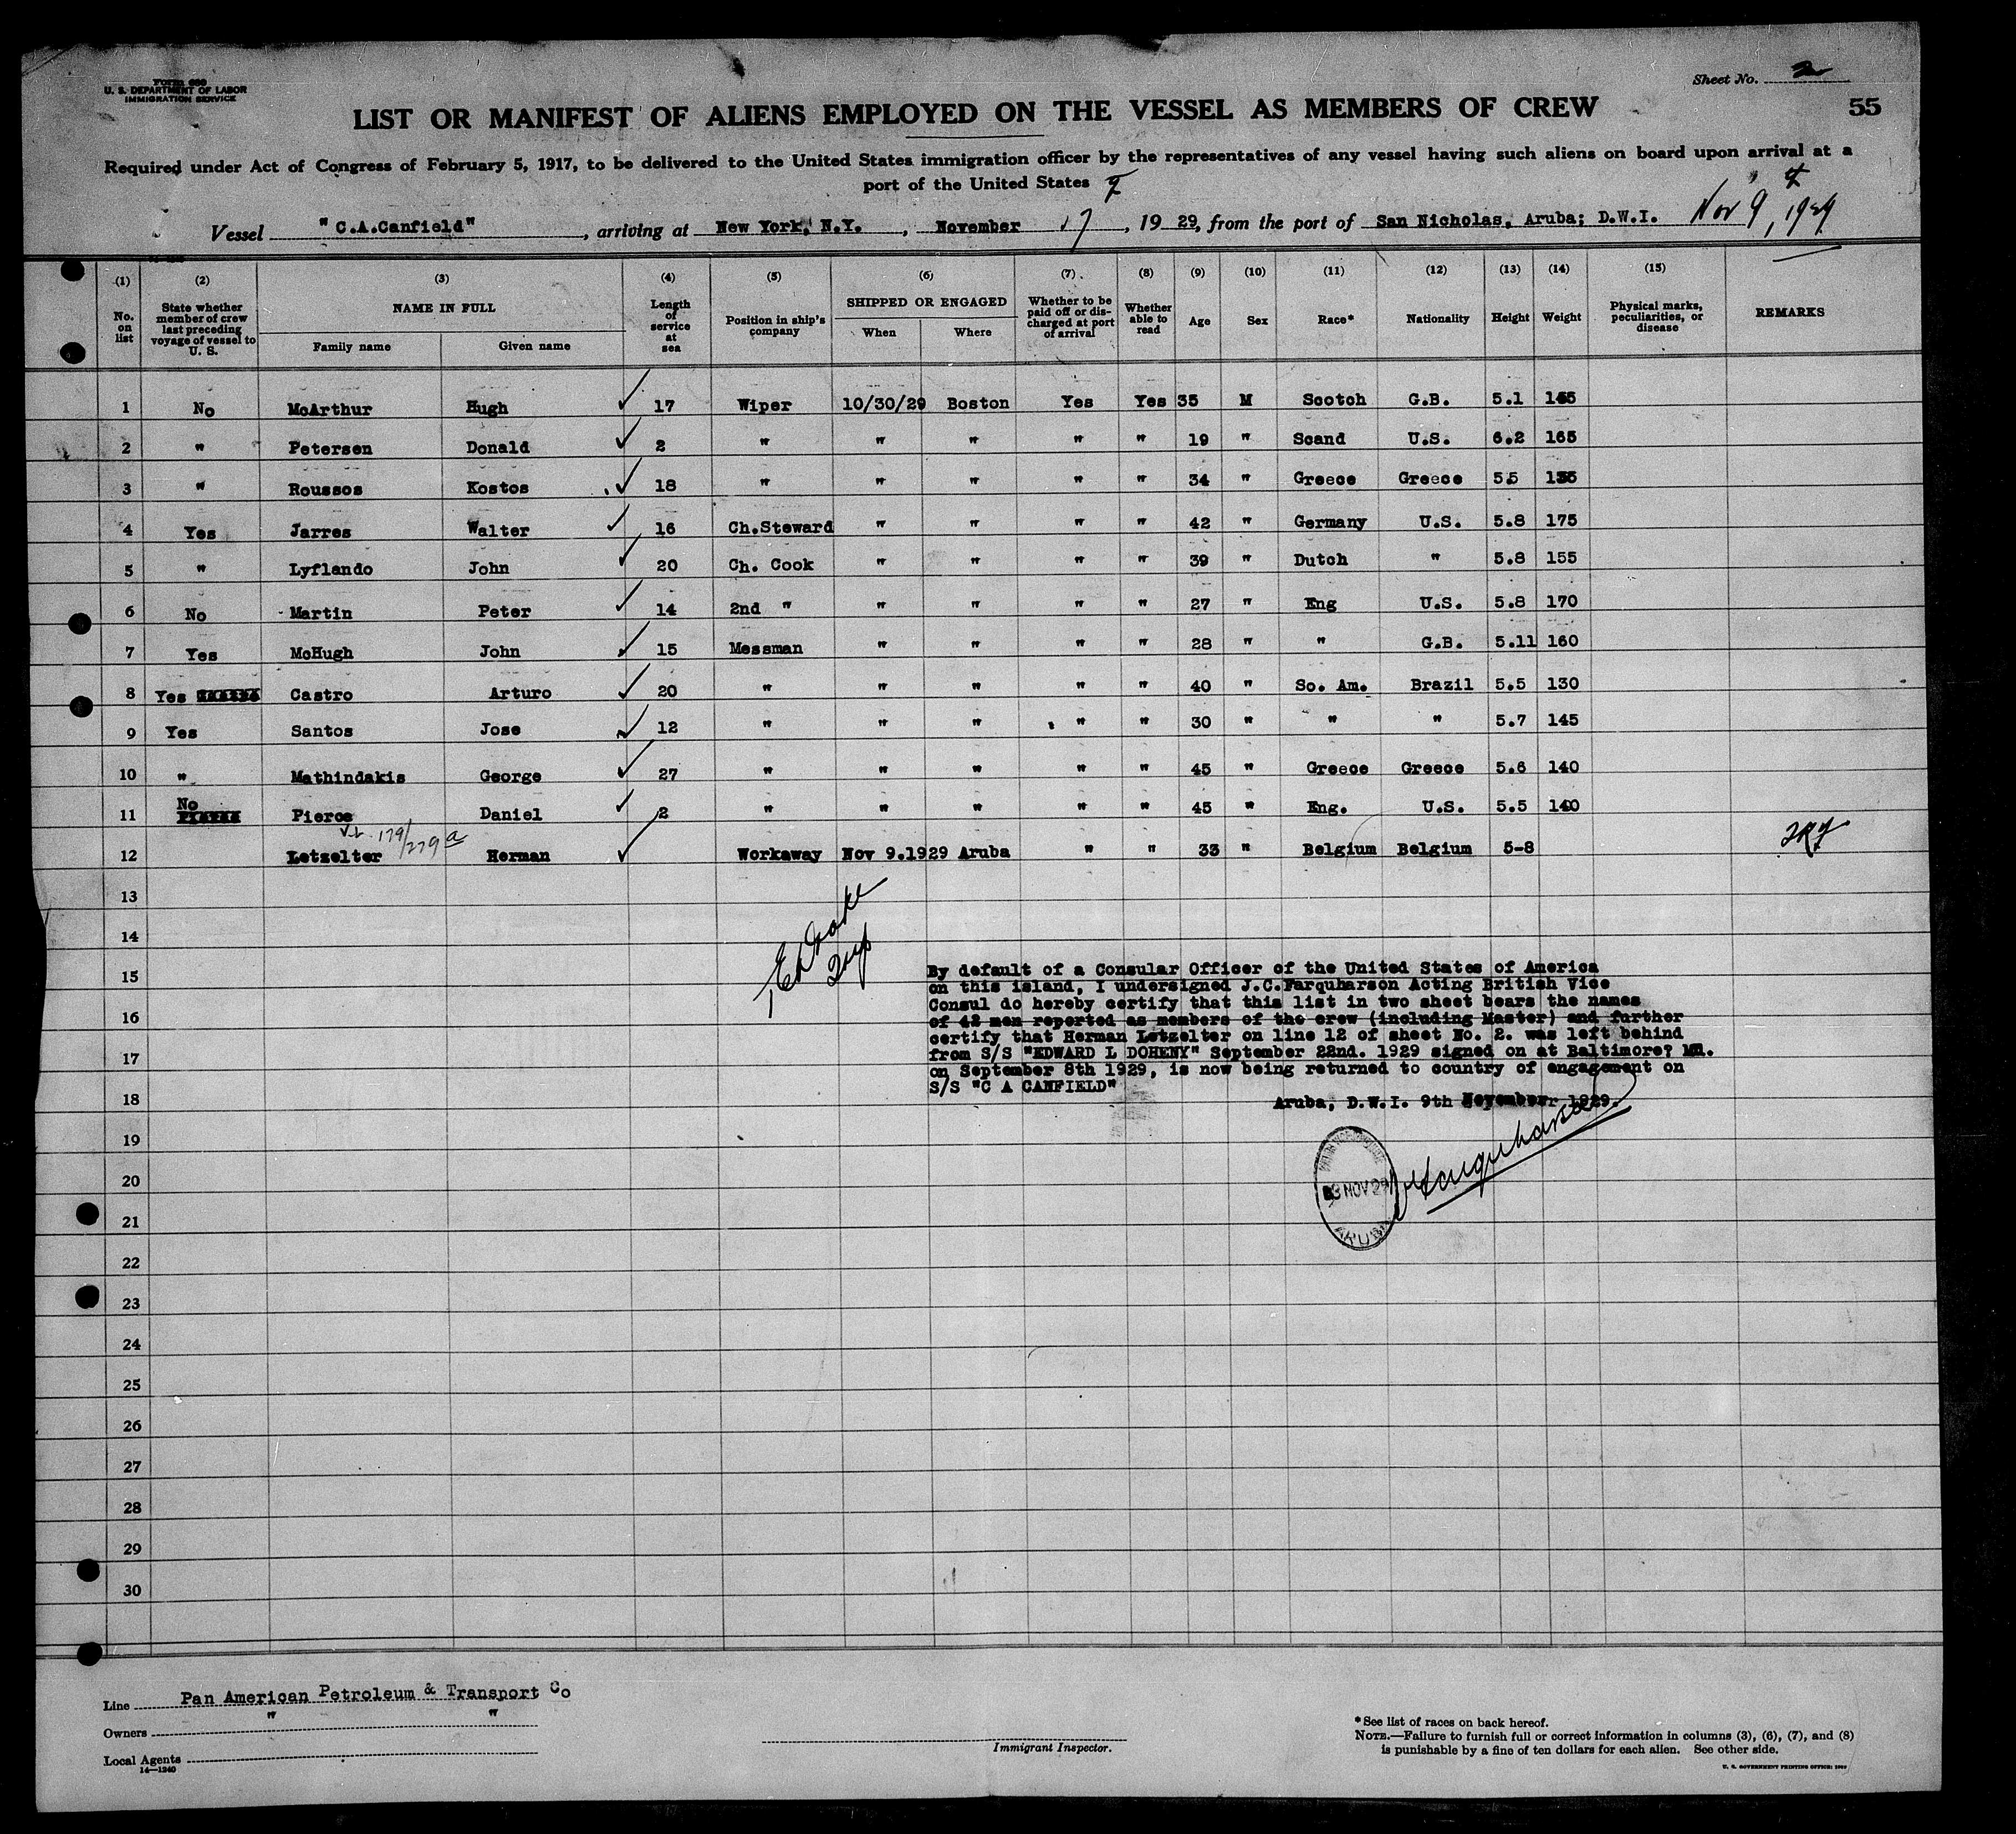 Form 680
U. S. DEPARTMENT OF LABOR
IMMIGRATION SERVICE
Sheet No. 2
LIST OR MANIFEST OF ALIENS EMPLOYED ON THE VESSEL AS MEMBERS OF CREW
55
Required under Act of Congress of February 5, 1917, to be delivered to the United States immigration officer by the representatives of any vessel having such aliens on board upon arrival at a
port of the United States
Vessel "C.A.Canfield", arriving at New York, N.Y., November 17, 1929, from the port of San Nicholas, Aruba; D.W.I. Nov 9, 1929
(1) (2) (3) (4) (5) (6) (7) (8) (9) (10) (11) (12) (13) (14) (15)
No. on list State whether member of crew last preceding voyage of vessel to U. S. NAME IN FULL Family name Given name Length of service at sea Position in ship's company SHIPPED OR ENGAGED When Where Whether to be paid off or discharged at port of arrival Whether able to read Age Sex Race* Nationality Height Weight Physical marks, peculiarities, or disease REMARKS
1 No McArthur Hugh ✓ 17 Wiper 10/30/29 Boston Yes Yes 35 M Scotch G.B. 5.1 145
2 " Petersen Donald ✓ 2 " " " " " 19 " Scand U.S. 6.2 165
3 " Roussos Kostos ✓ 18 " " " " " 34 " Greece Greece 5.5 135
4 Yes Jarres Walter ✓ 16 Ch.Steward " " " " 42 " Germany U.S. 5.8 175
5 " Lyflando John ✓ 20 Ch. Cook " " " " 39 " Dutch " 5.8 155
6 No Martin Peter ✓ 14 2nd " " " " " 27 " Eng U.S. 5.8 170
7 Yes McHugh John ✓ 15 Messman " " " " 28 " " G.B. 5.11 160
8 Yes Castro Arturo ✓ 20 " " " " " 40 " So. Am. Brazil 5.5 130
9 Yes Santos Jose ✓ 12 " " " " " 30 " " " 5.7 145
10 " Mathindakis George ✓ 27 " " " " " 45 " Greece Greece 5.6 140
11 No Pierce Daniel ✓ 2 " " " " " 45 " Eng. U.S. 5.5 140
179/279 a
12 Letzelter Herman ✓ Workaway Nov 9.1929 Aruba " " 33 " Belgium Belgium 5-8
13
14
15
16
17
18
By default of a Consular Officer of the United States of America
on this island, I undersigned J.C.Farquharson Acting British Vice
Consul do hereby certify that this list in two sheet bears the names
of 42 men reported as members of the crew (including Master) and further
certify that Herman Letzelter on line 12 of sheet No. 2. was left behind
from S/S "EDWARD L DOHENY" September 22nd. 1929 signed on at Baltimore? Md.
on September 8th 1929, is now being returned to country of engagement on
S/S "C A CANFIELD"
Aruba, D.W.I. 9th November 1929.
Farquharson
NOV 29
ARUBA
19
20
21
22
23
24
25
26
27
28
29
30
Line Pan American Petroleum & Transport Co
Owners " "
Local Agents
14—1240
Immigrant Inspector.
* See list of races on back hereof.
NOTE.—Failure to furnish full or correct information in columns (3), (6), (7), and (8)
is punishable by a fine of ten dollars for each alien. See other side.
U. S. GOVERNMENT PRINTING OFFICE: 1929